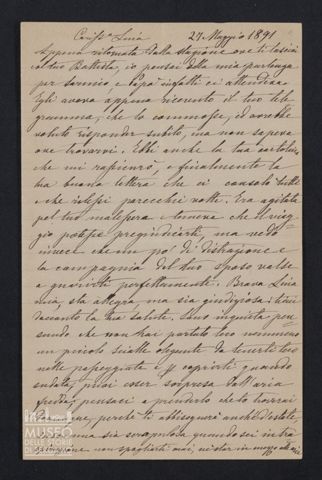 Cariss.ª Lina 27. Maggio 1891
Appena ritornata dalla stazione ove ti lasciai
col tuo Battista, io pensai della mia partenza
per Sovico, e Papà infatti ci attendeva
Egli aveva appena ricevuto il tuo tele
gramma, che lo commosse, ed avrebbe
voluto risponder subito, ma non sapeva
ove trovarvi. Ebbi anche la tua cartolina
che mi rapienrò, e finalmente la
tua buona lettera che ci consolò tutti
e che rilessi parecchie volte. Era agitata
pel tuo malessere e temeva che il viag
gio potesse pregiudicarti, ma vedo
invece che un po' di distrazione e
la compagnia del tuo sposo valse
a guarirti perfettamente. Brava Lina
mia, sta allegra, ma sia giudiziosa e tieni
daconto la tua salute. Sono inquieta pen
sando che non hai portato teco nemmeno
un piccolo sciallo leggente da tenerti teco
nelle passeggiate e p coprirti quando
sudata, puoi esser sorpresa dall'aria
fredda; pensaci a prenderlo che lo troverai
perchè ti abbisognerà anche d'estate,
mia sia scrupolosa quando sei in tra
spirazione non spogliarti mai, nè star in mezzo all'aria
MUSEO
DELLE STORIE
DI